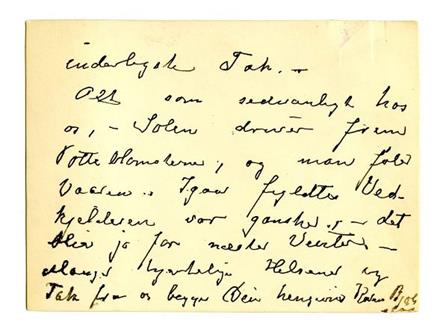 inderligste Tak. –
Alt som sedvanligt hos
os, – Solen driver frem
Potteblomsterne, og man føler
Vaaren. Igaar fyldtes Ved-
kjelderen vor ganske, – det
blir jo for næste Vinter –
Mange hjertelige Hilsener og
Tak fra os begge Din hengivne